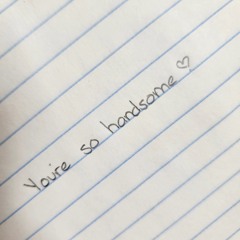 You're so handsome ♡